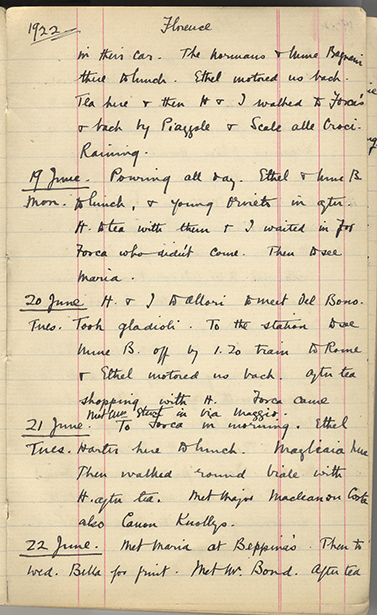 1922 Florence
in their car. The Normans & Mme
there to lunch. Ethel motored us back.
Tea here & then H & I walked to Forca's
& back by Piazzole & Scale alle Croci.
Raining.
19 June. Pouring all day. Ethel & Mme B.
Mon. to lunch, & young in aftr.
H. to tea with them & I waited in for
Forca who didn't come. Then to see
Maria.
20 June H. & I to Allori to meet Del Bono.
Tues. Took gladioli. To the station to see
Mme B. off by 1.20 train to Rome
& Ethel motored us back. Aftr tea
shopping with H. Forca came
Met Mrs in Via Maggio.
21 June. To Forca in morning. Ethel
Tues. Harter here to lunch. here
Then walked round viale with
H. aftr tea. Met Major Maclean on Costa
also Canon Knollys.
22 June. Met Maria at Beppina's. Then to
Wed. Bella for fruit. Met Mr. Bond. After tea